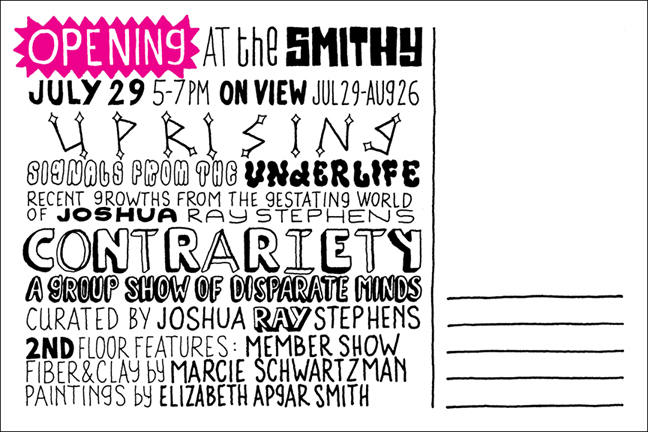 OPENING AT the SMITHY
JULY 29 5-7PM ON VIEW JUL29-AUG26
UPRISING
SIGNALS FROM THE UNDERLIFE
RECENT GROWTHS FROM THE GESTATING WORLD
OF JOSHUA RAY STEPHENS
CONTRARIETY
A GROUP SHOW OF DISPARATE MINDS
CURATED BY JOSHUA RAY STEPHENS
2ND FLOOR FEATURES: MEMBER SHOW
FIBER&CLAY by MARCIE SCHWARTZMAN
PAINTINGS by ELIZABETH APGAR SMITH